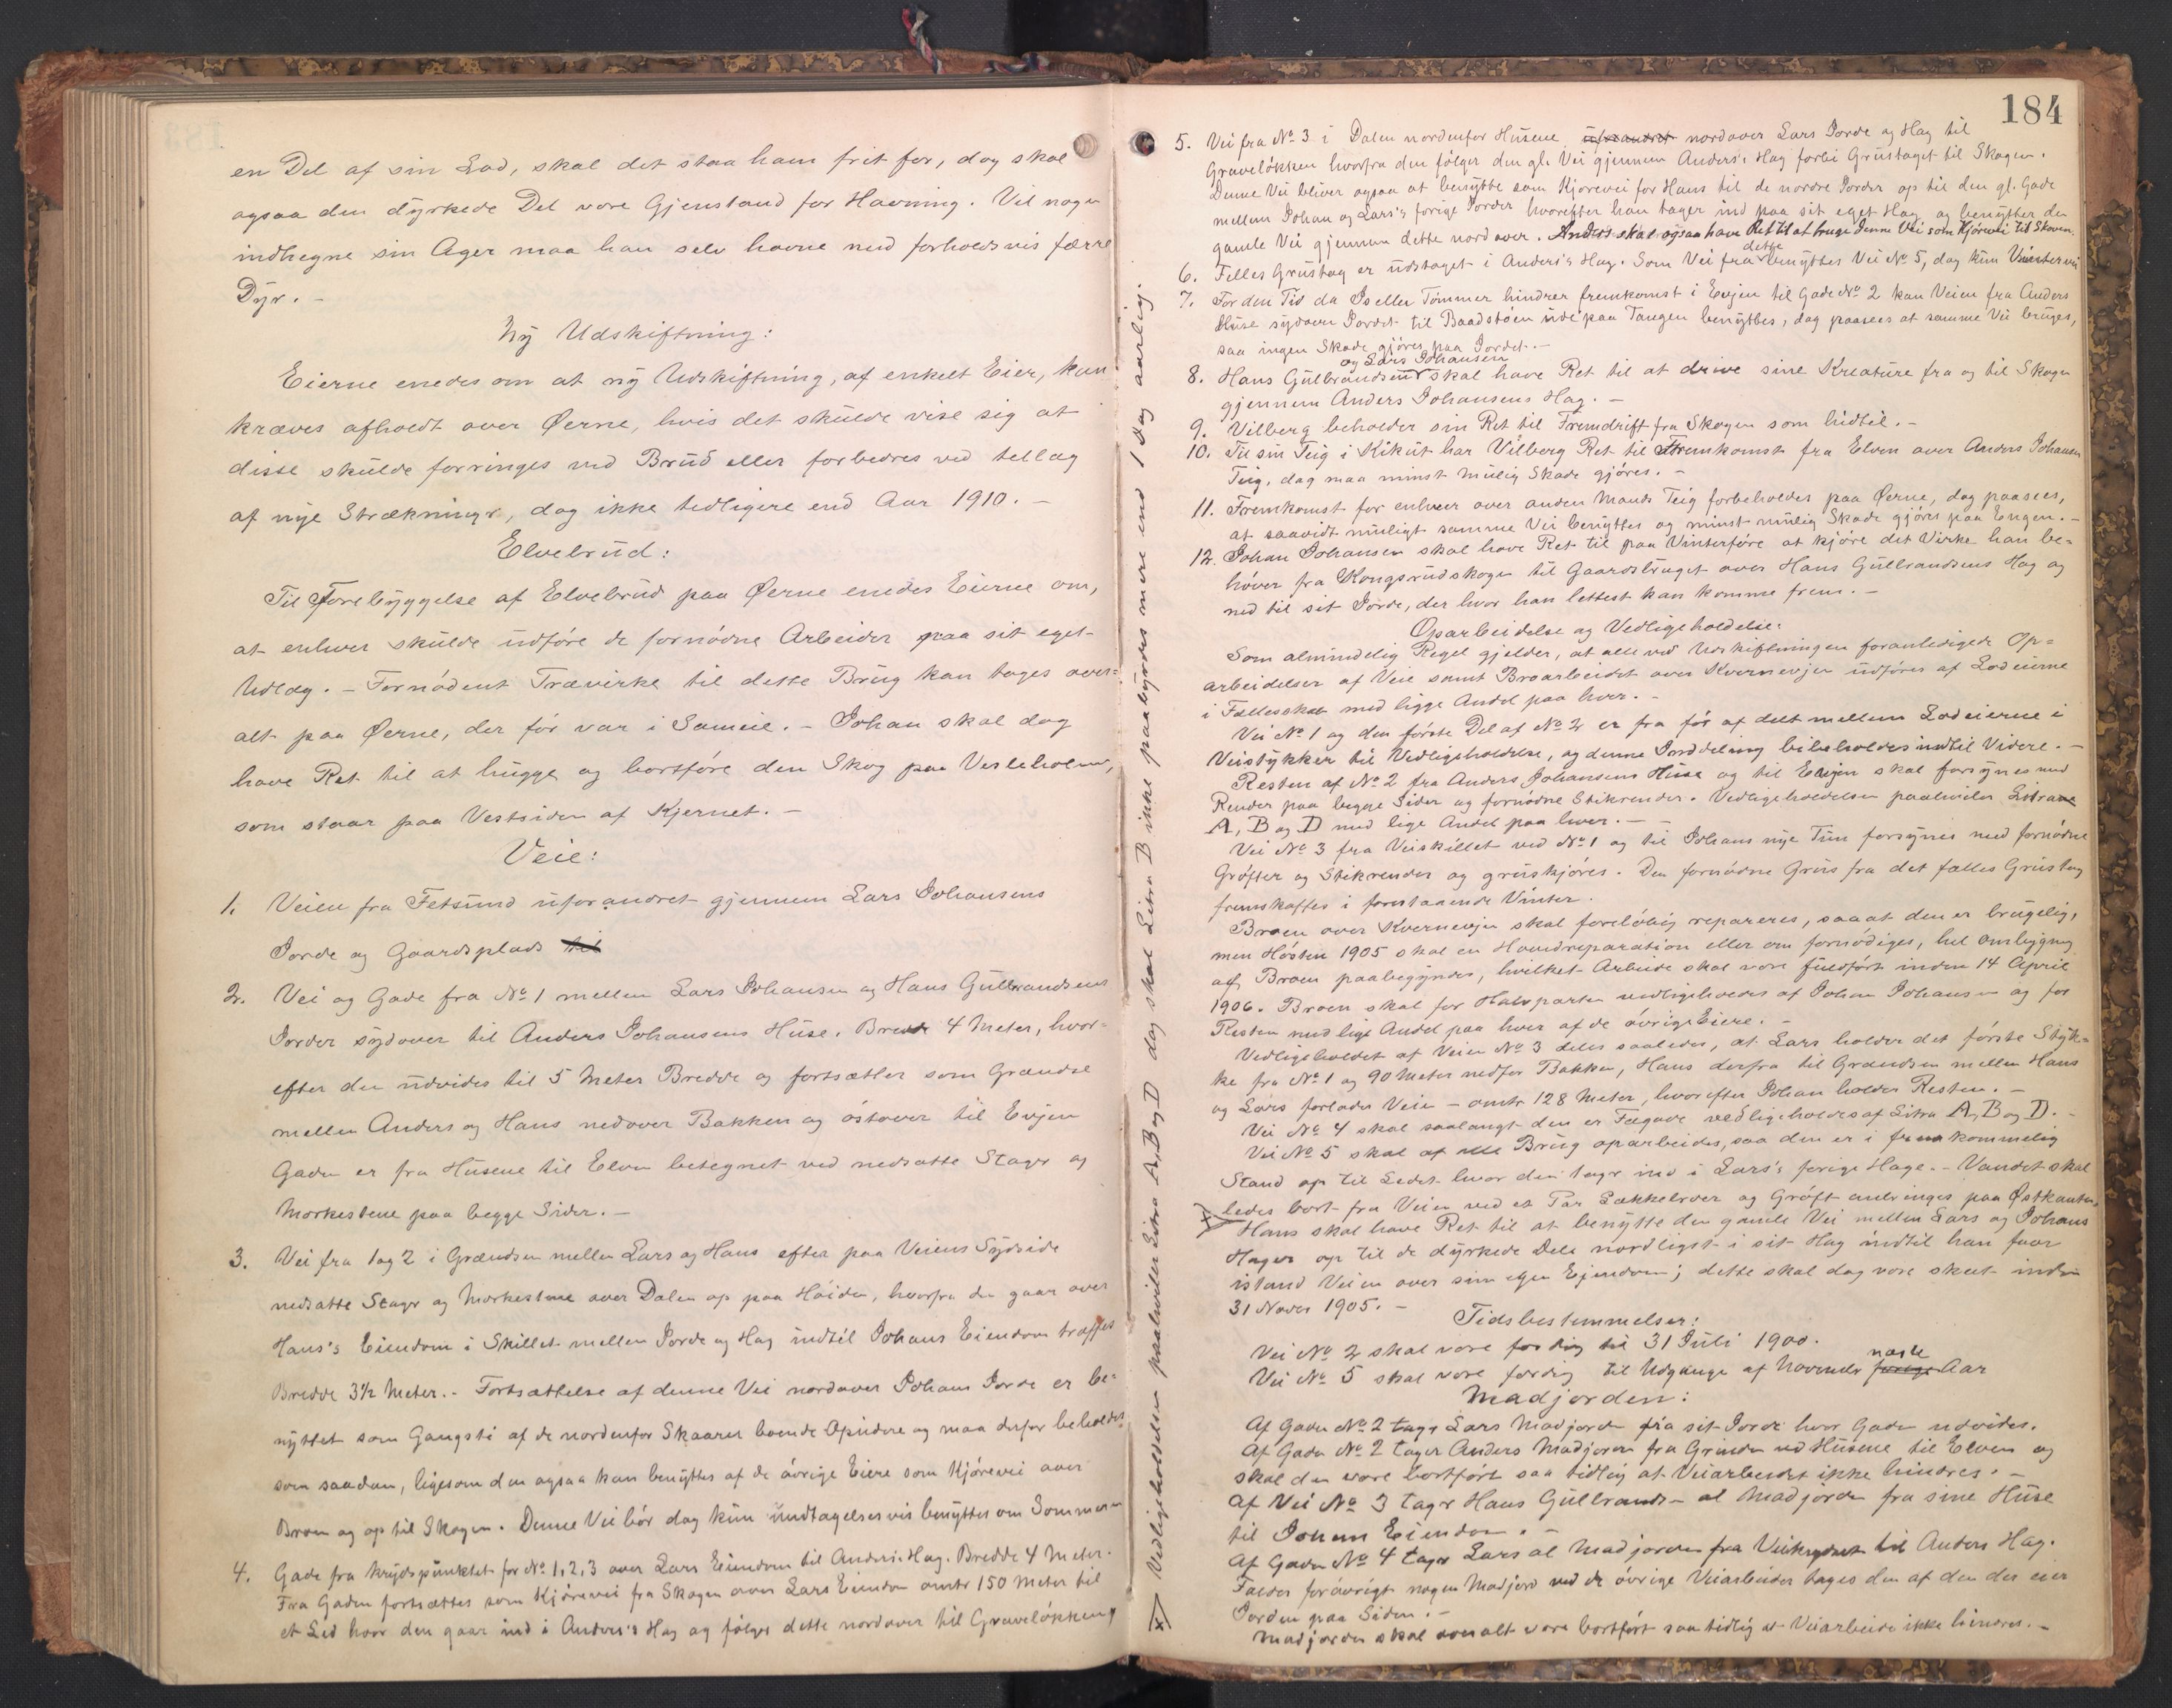 en Del af sin Lod, skal det staa ham frit for, dog skal
ogsaa den dyrkede Del være Gjenstand for Havning. Vil nogen
indhegne sin Ager maa han selv havne med forholdsvis færre
Dyr. -
Ny Udskiftning:
Eierne enedes om at ny Udskiftning, af enkelt Eier, kan
kræves afholdt over Øerne, hvis det skulde vise sig at
disse skulde forringes ved Brud eller forbedres ved tillæg
af nye Strækninger, dog ikke tidligere end Aar 1910. -
Elvebrud:
Til Forebyggelse af Elvebrud paa Øerne enedes Eierne om,
at enhver skulde udføre de fornødne Arbeider paa sit eget
Udlæg. - Fornødent Trævirke til dette Brug kan tages over-
alt paa Øerne, der før var i Sameie. - Johan skal dog
have Ret til at hugge og bortføre den Skog paa Vesleholmen,
som staar paa Vestsiden af Kjernet. -
Veie:
1. Veien fra Fetsund uforandret gjennem Lars Johansens
Jorde og Gaardsplads til
2. Vei og Gade fra No 1 mellem Lars Johansen og Hans Gulbrandsens
Jorder sydover til Anders Johansens Huse. Bredde 4 Meter, hvor-
efter den udvides til 5 Meter Bredde og fortsætter som Grændse
mellem Anders og Hans nedover Bakken og østover til Evjen
Gaden er fra Husene til Elven betegnet ved nedsatte Stager og
Merkestene paa begge Sider. -
3. Vei fra 1 og 2 i Grændsen mellem Lars og Hans efter paa Veiens Sydside
nedsatte Stager og Merkestene over Dalen op paa Høiden, hvorfra den gaar over
Hans's Eiendom i Skillet mellem Jorde og Hag indtil Johans Eiendom træffes
Bredde 3½ Meter. - Fortsættelse af denne Vei nordover Johans Jorde er be-
nyttet som Gangsti af de nordenfor Skaarer boende Opsidere og maa derfor beholdes
som saadan, ligesom den ogsaa kan benyttes af de øvrige Eiere som Kjørevei over
Broen og op til Skogen. Denne Vei bør dog kun undtagelsesvis benyttes om Sommeren
4. Gade fra Krydspunktet for No 1, 2, 3 over Lars Eiendom til Anders's Hag. Bredde 4 Meter.
Fra Gaden fortsættes som Kjørevei fra Skogen over Lars Eiendom omtr 150 Meter til
et Led hvor den gaar ind i Anders's Hag og følger dette nordover til Graveløkken
x/ Vedligeholdelsen paahviler Litra A, B og D dog skal Litra B ikke paabyrdes mere end 1 Dag aarlig.
184
5. Vei fra No 3 i Dalen nordenfor Husene uforandret nordover Lars Jorde og Hag til
Graveløkken hvorfra den følger den gl. Vei gjennem Anders's Hag forbi Grustaget til Skogen.
Denne Vei bliver ogsaa at benytte som Kjørevei for Hans til de nordre Jorder op til den gl. Gade
mellem Johan og Lars's forige Jorder hvorefter han tager ind paa sit eget Hag og benytter den
gamle Vei gjennem dette nordover. Anders skal ogsaa have Ret til at bruge denne Vei som Kjørevei til Skoven.
dette
6. Felles Grustag er udstaget i Anders's Hag. Som Vei fra benyttes Vei No 5, dog kun Vintervei
7. For den Tid da Is eller Tømmer hindrer fremkomst i Evjen til Gade No 2 kan Veien fra Anders
Huse sydover Jordet til Baadstøen ude paa Tangen benyttes, dog paasees at samme Vei bruges,
saa ingen Skade gjøres paa Jordet. -
og Lars Johansen
8. Hans Gulbrandsen skal have Ret til at drive sine Kreature fra og til Skogen
gjennem Anders Johansens Hag. -
9. Vilberg beholder sin Ret til Fremdrift fra Skogen som hidtil. -
10. Til sin Teig i Kikut har Vilberg Ret til Fremkomst fra Elven over Anders Johansens
Teig, dog maa minst mulig Skade gjøres. -
11. Fremkomst for enhver over anden Mands Teig forbeholdes paa Øerne, dog paasees,
at saavidt muligt samme Vei benyttes og minst mulig Skade gjøres paa Engen. -
12. Johan Johansen skal have Ret til paa Vinterføre at kjøre det Virke han be-
høver fra Kongsrudskogen til Gaardsbruget over Hans Gulbrandsens Hag og
ned til sit Jorde, der hvor han lettest kan komme frem. -
Oparbeidelse og Vedligeholdelse:
Som almindelig Regel gjelder, at alle ved Udskiftningen foranledigede Op-
arbeidelser af Veie samt Broarbeidet over Kvernevjen udføres af Lodeierne
i Fællesskab med ligge Andel paa hver. -
Vei No 1 og den første Del af No 2 er fra før af delt mellem Lodeierne i
Veistykker til Vedligeholdelse, og denne Inddeling bibeholdes indtil Videre. -
Resten af No 2 fra Anders Johansens Huse og til Evjen skal forsynes med
Render paa begge Sider og fornødne Stikrender. Vedligeholdelsen paahviler Litrane
A, B og D med lige Andel paa hver. -
Vei No 3 fra Veiskillet ved No 1 og til Johans nye Tun forsynes med fornødne
Grøfter og Stikrender og gruskjøres. Den fornødne Grus fra det fælles Grustag
fremskaffes i forestaaende Vinter.
Broen over Kvernevjen skal foreløbig repareres, saa at den er brugelig,
men Høsten 1905 skal en Hovedreparation eller om fornødiges, hel ombygning
af Broen paabegyndes, hvilket Arbeide skal være fuldført inden 14 April
1906. Broen skal for Halvparten vedligeholdes af Johan Johansen og for
Resten med lige Andel paa hver af de øvrige Eiere. -
Vedligeholdet af Veien No 3 deles saaledes, at Lars holder det første Styk-
ke fra No 1 og 90 Meter nedfor Bakken, Hans derfra til Grændsen mellem Hans
og Lars forlader Veien - omtr 128 Meter, hvorefter Johan holder Resten. -
Vei No 4 skal saalangt den er Fægade, vedligeholdes af Litra A, B og D. -
Vei No 5 skal af alle Brug oparbeides, saa den er i fremkommelig
Stand op til Ledet hvor den tager ind i Lars's forige Hage. - Vandet skal
ledes bort fra Veien ved et Par Lækkebroer og Grøft anbringes paa Østkanten,
x/ Hans skal have Ret til at benytte den gamle Vei mellem Lars og Johans
Hager op til de dyrkede Dele nordligst i sit Hag indtil han faar
istand Veien over sin egen Ejendom; dette skal dog være skeet inden
31 Novbr 1905. -
Tidsbestemmelser:
Vei No 2 skal være færdig til 31 Juli 1900.
næste
Vei No 5 skal være færdig til Udgange af November forige Aar
Madjorden:
Af Gaden No 2 tager Lars Madjorden fra sit Jorde hvor Gaden udvides.
Af Gaden No 2 tager Anders Madjorden fra Grinden ved Husene til Elven og
skal den være bortført saa tidlig at Veiarbeidet ikke hindres. -
Af Vei No 3 tager Hans Gulbrands- al Madjorden fra sine Huse
til Johans Eiendom. -
Af Gaden No 4 tager Lars al Madjorden fra Veikrydset til Anders Hag.
Falder forøvrigt nogen Madjord ved de øvrige Veiarbeider tages den af den der eier
Jorden paa Siden. -
Madjorden skal overalt være bortført saa tidlig at Veiarbeide ikke hindres. -